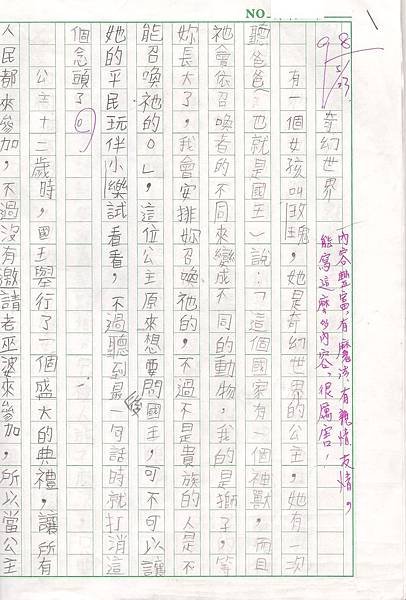 NO.
1
98
5/23
奇幻世界
有一個女孩叫玫瑰,她是奇幻世界的公主,她有一次
聽爸爸(也就是國王)說:「這個國家有一個神獸,而且
祂會依召喚者的不同來變成不同的動物,我的是獅子,等
妳長大了,我會安排妳召喚祂的,不過不是貴族的人是不
能召喚祂的。」,這位公主原來想要問國王,可不可以讓
她的平民玩伴小樂試看看,不過聽到最後一句話時就打消這
個念頭了。
公主十二歲時,國王舉行了一個盛大的典禮,讓所有
人民都來參加,不過沒有邀請老巫婆來參加,所以當公主
內容豐富,有魔法,有親情、友情,
能寫這麼多內容,很厲害!